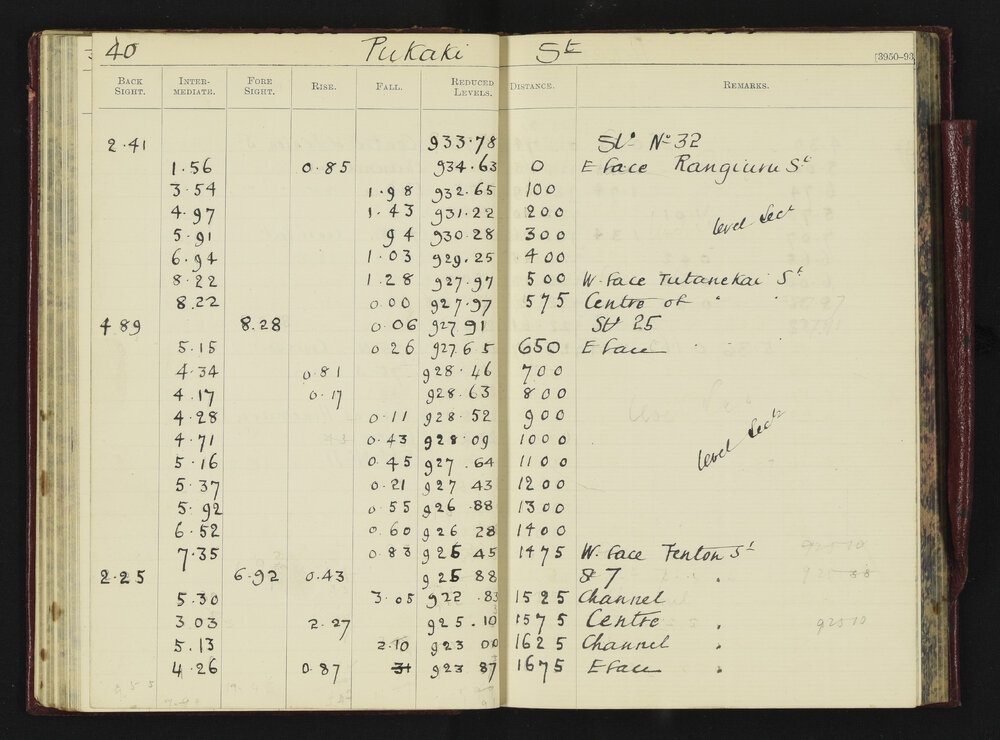 40 Pukaki St [3950-93
BACK SIGHT. INTER-MEDIATE. FORE SIGHT. RISE. FALL. REDUCED LEVELS. DISTANCE. REMARKS.
2.41 933.78 St. No 32
1.56 0.85 934.63 0 E face Rangiuru St
3.54 1.98 932.65 100
4.97 1.43 931.22 200 level Sect
5.91 94 930.28 300
6.94 1.03 929.25 400
8.22 1.28 927.97 500 W. face Tutanekai St
8.22 0.00 927.97 575 Centre of "
4.89 8.28 0.06 927.91 St 25
5.15 0 26 927.65 650 E face
4.34 0.81 928.46 700
4.17 0.17 928.63 800
4.28 0.11 928.52 900
4.71 0.43 928.09 1000 level Sect
5.16 0.45 927.64 1100
5.37 0.21 927 43 1200
5.92 0.55 926.88 1300
6.52 0.60 926 28 1400
7.35 0.83 925 45 1475 W. face Fenton St
2.25 6.92 0.43 925 88 & 7 "
5.30 3.05 922.83 1525 Channel
3 03 2.27 925.10 1575 Centre " 92510
5.13 2.10 923 00 1625 Channel "
4.26 0.87 31 923 87 1675 E face "